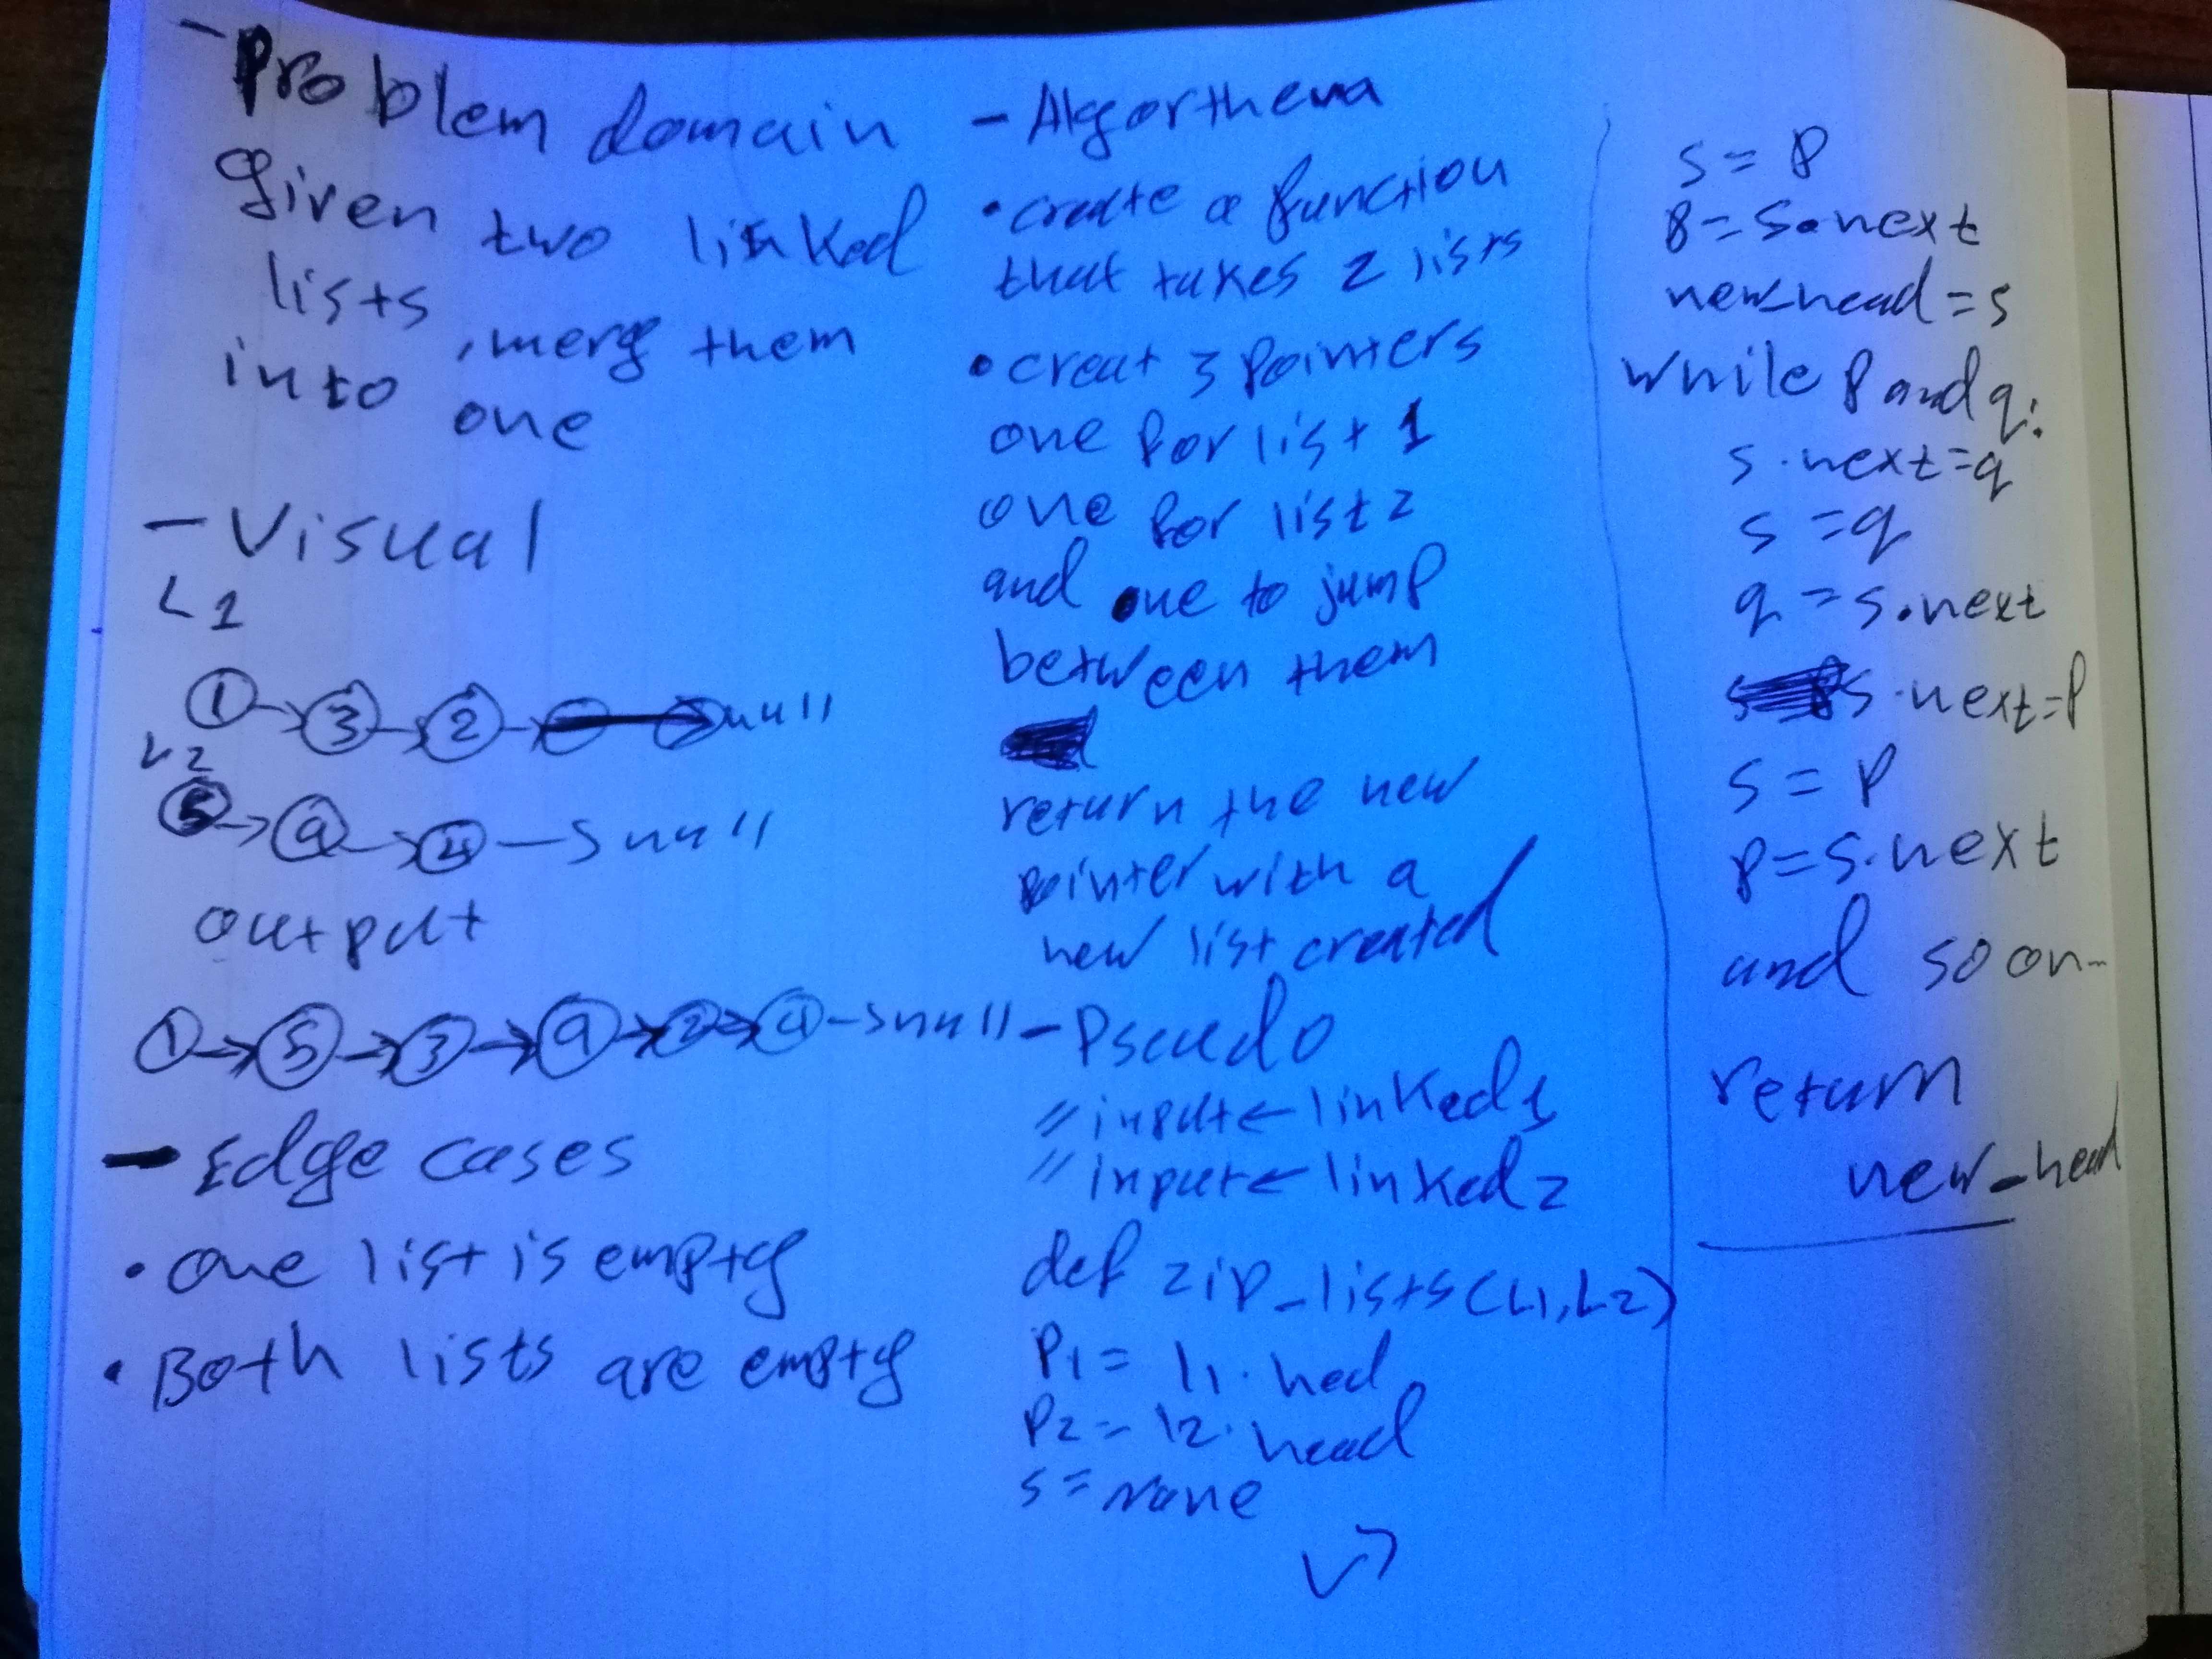 - Problem domain
Given two linked
lists, merg them
into one
- Visual
L1
1 → 3 → 2 → null
L2
5 → 9 → 4 → null
output
1 → 5 → 3 → 9 → 2 → 4 → null
- Edge cases
• one list is empty
• Both lists are empty
- Algorthema
• create a function
that takes 2 lists
• creat 3 pointers
one for list 1
one for list 2
and one to jump
between them
return the new
pointer with a
new list created
- Pseudo
// input ← linked1
// input ← linked2
def zip_lists(L1, L2)
P1 = l1.hed
P2 = l2.head
s = none
s = P
P = s.next
new_head = s
while P and q:
s.next = q
s = q
q = s.next
s.next = P
s = P
P = s.next
and so on--
return
new_head